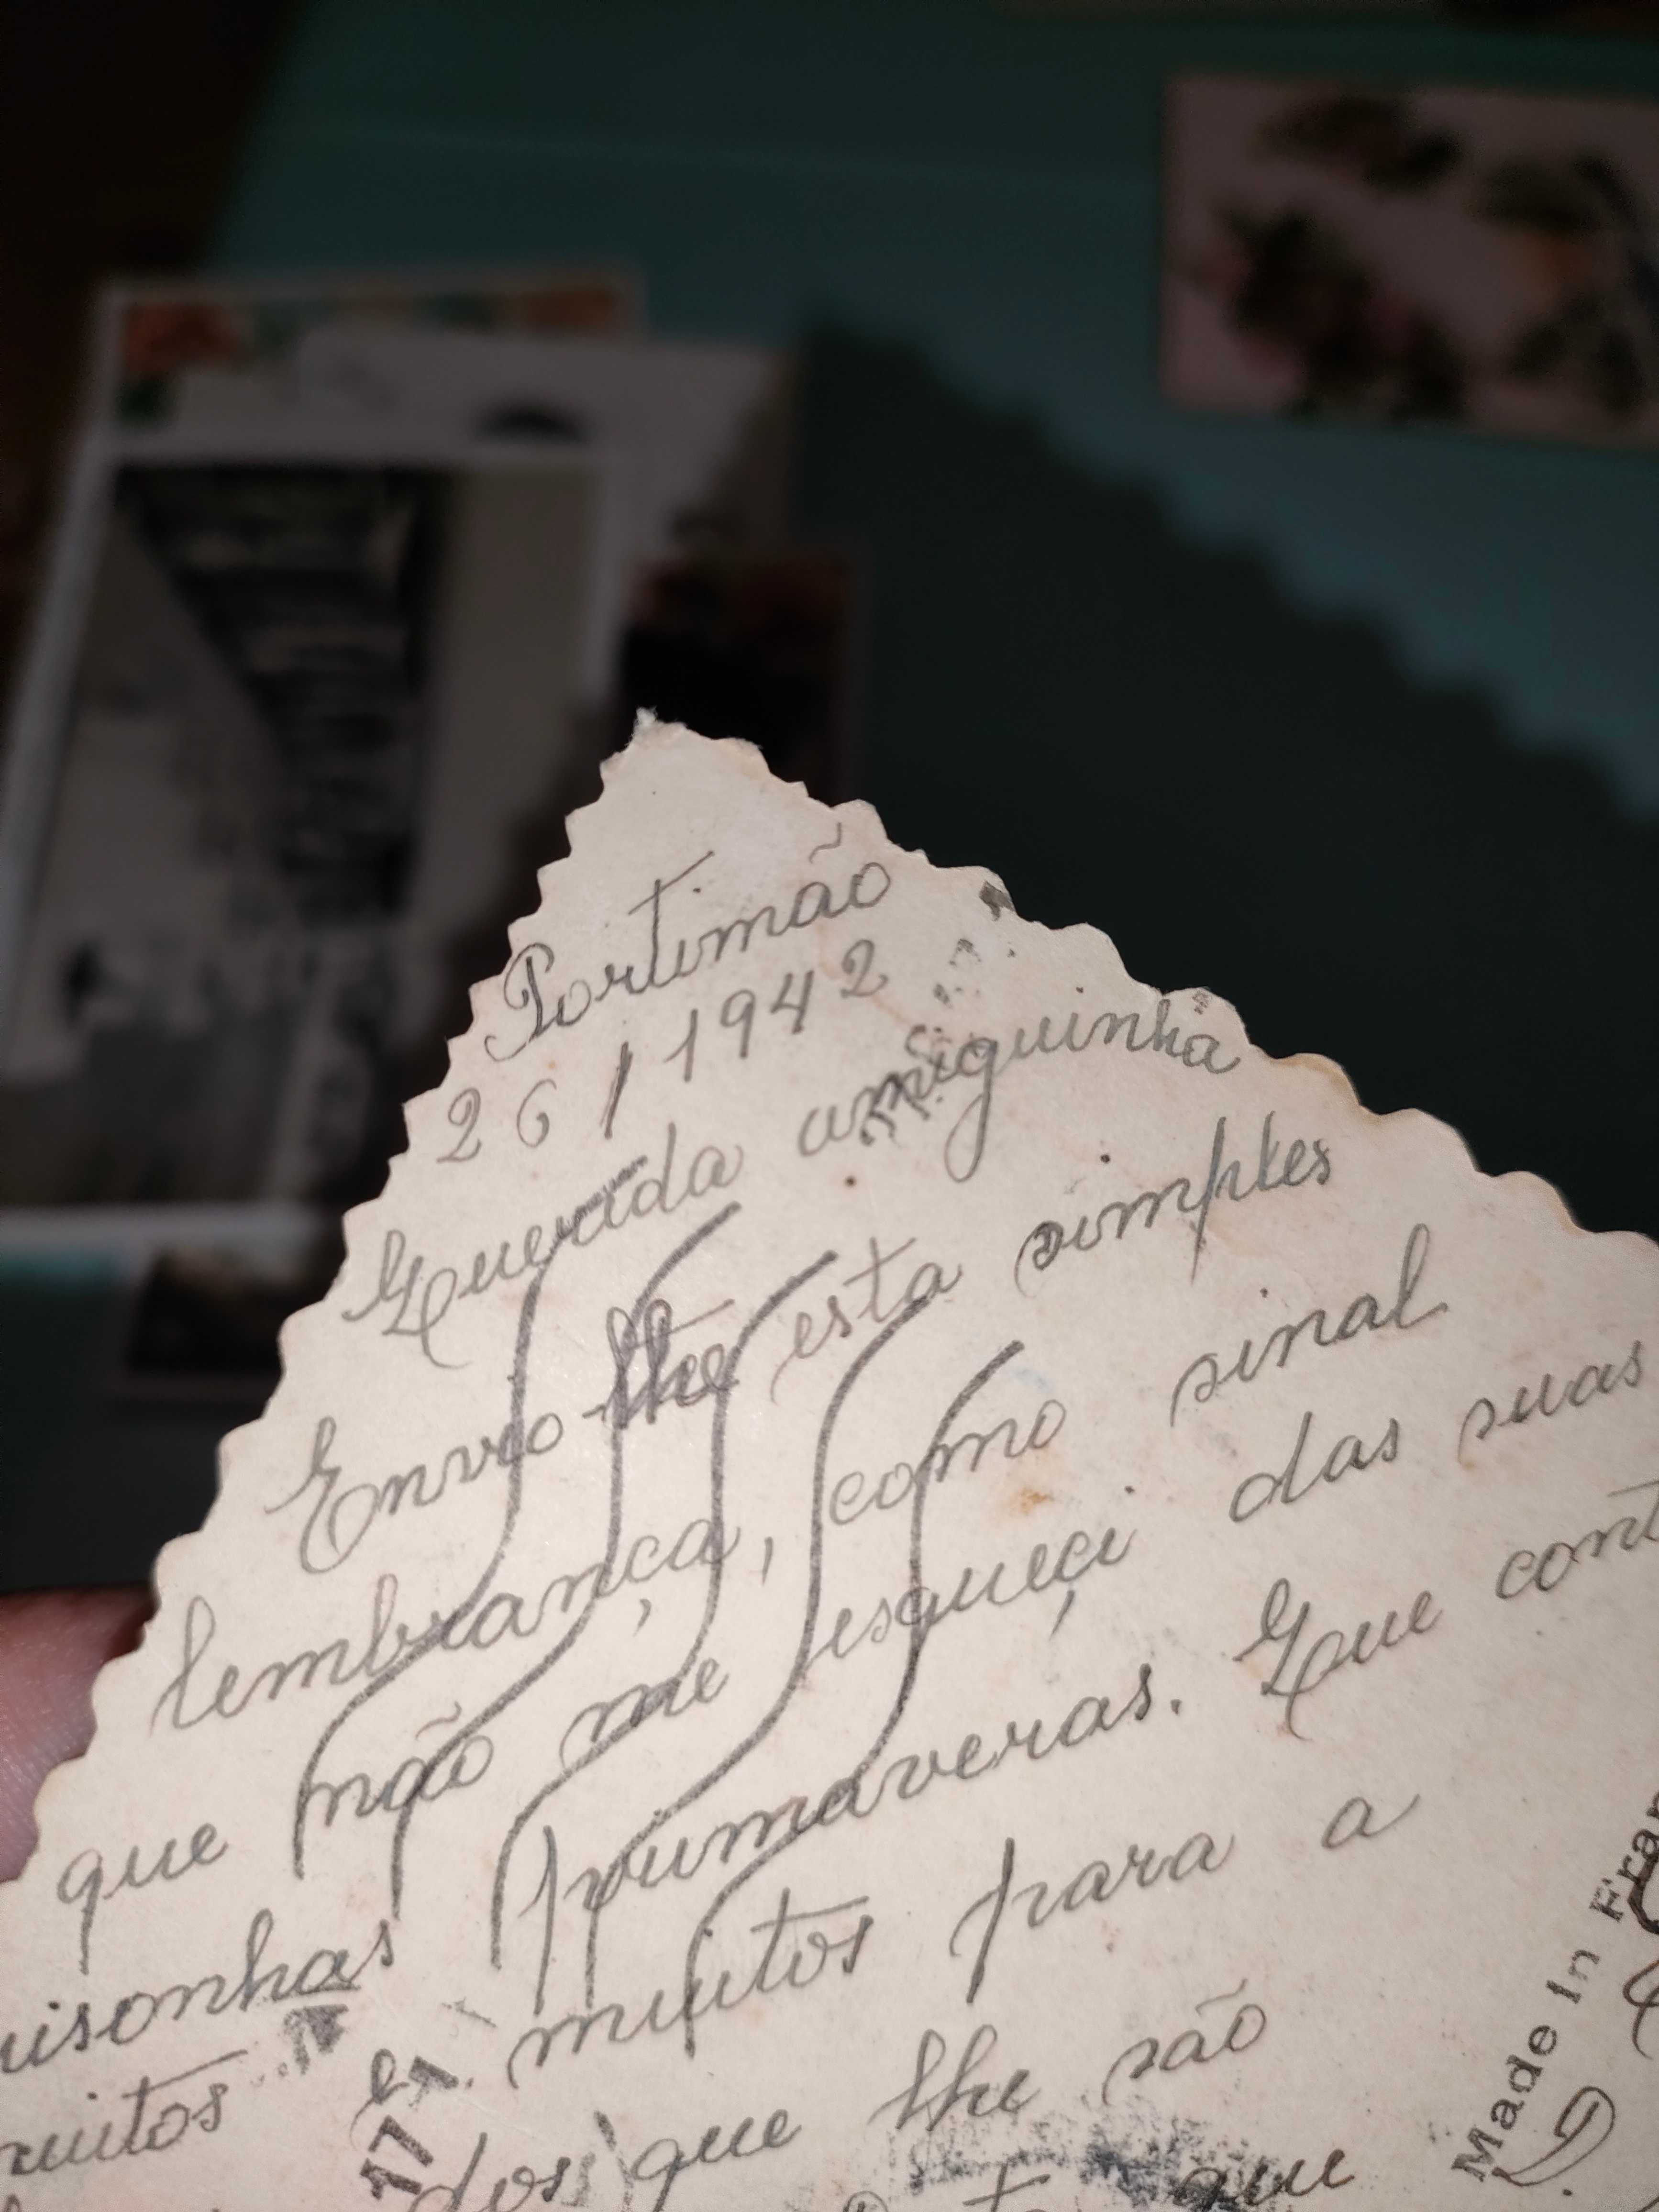 Portimão
26 / 1942
Querida amiguinha
Envio-lhe esta simples
lembrança, como sinal
que não me esqueçi das suas
risonhas primaveras. Que
e muitos para a
que lhe são
que
Made In
171